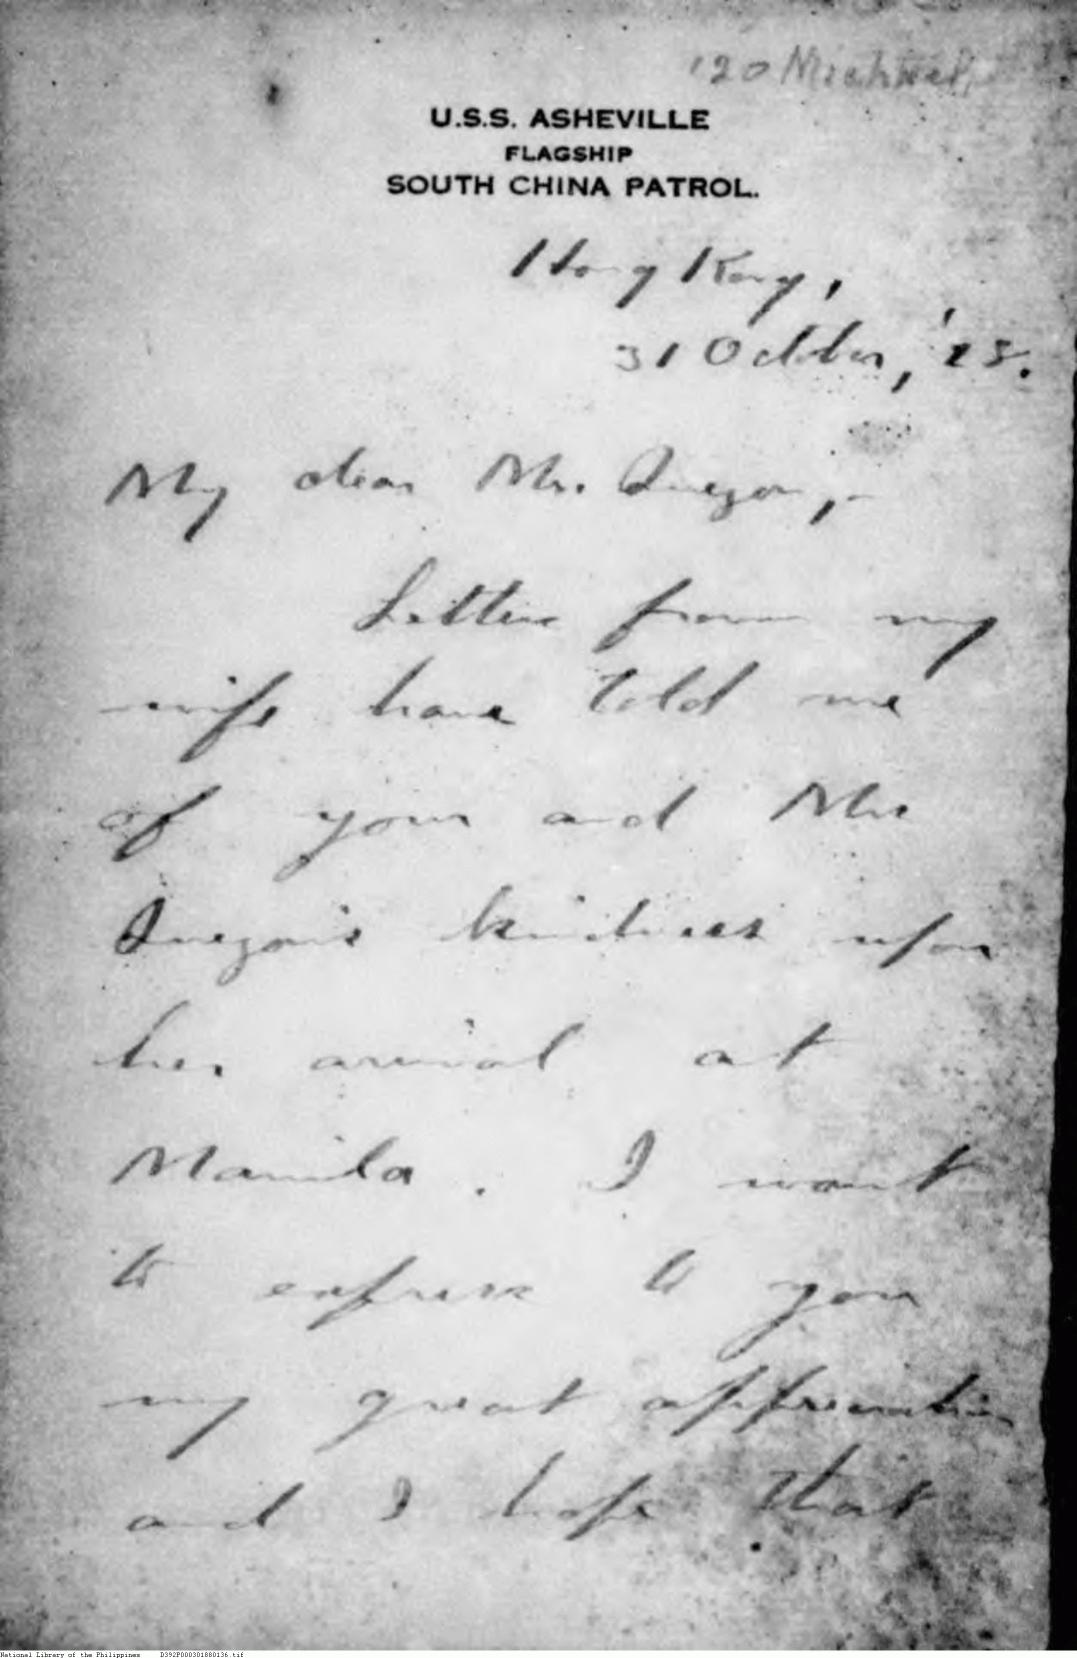 120
U.S.S. ASHEVILLE
FLAGSHIP
SOUTH CHINA PATROL.
Hong Kong,
31 October, '25.
My dear Mr. Quezon,-
Letters from my
wife have told me
of your and Mrs
Quezon's kindness upon
her arrival at
Manila. I want
to express to you
my great appreciation
and I hope that
National Library of the Philippines D392P000301880136.tif